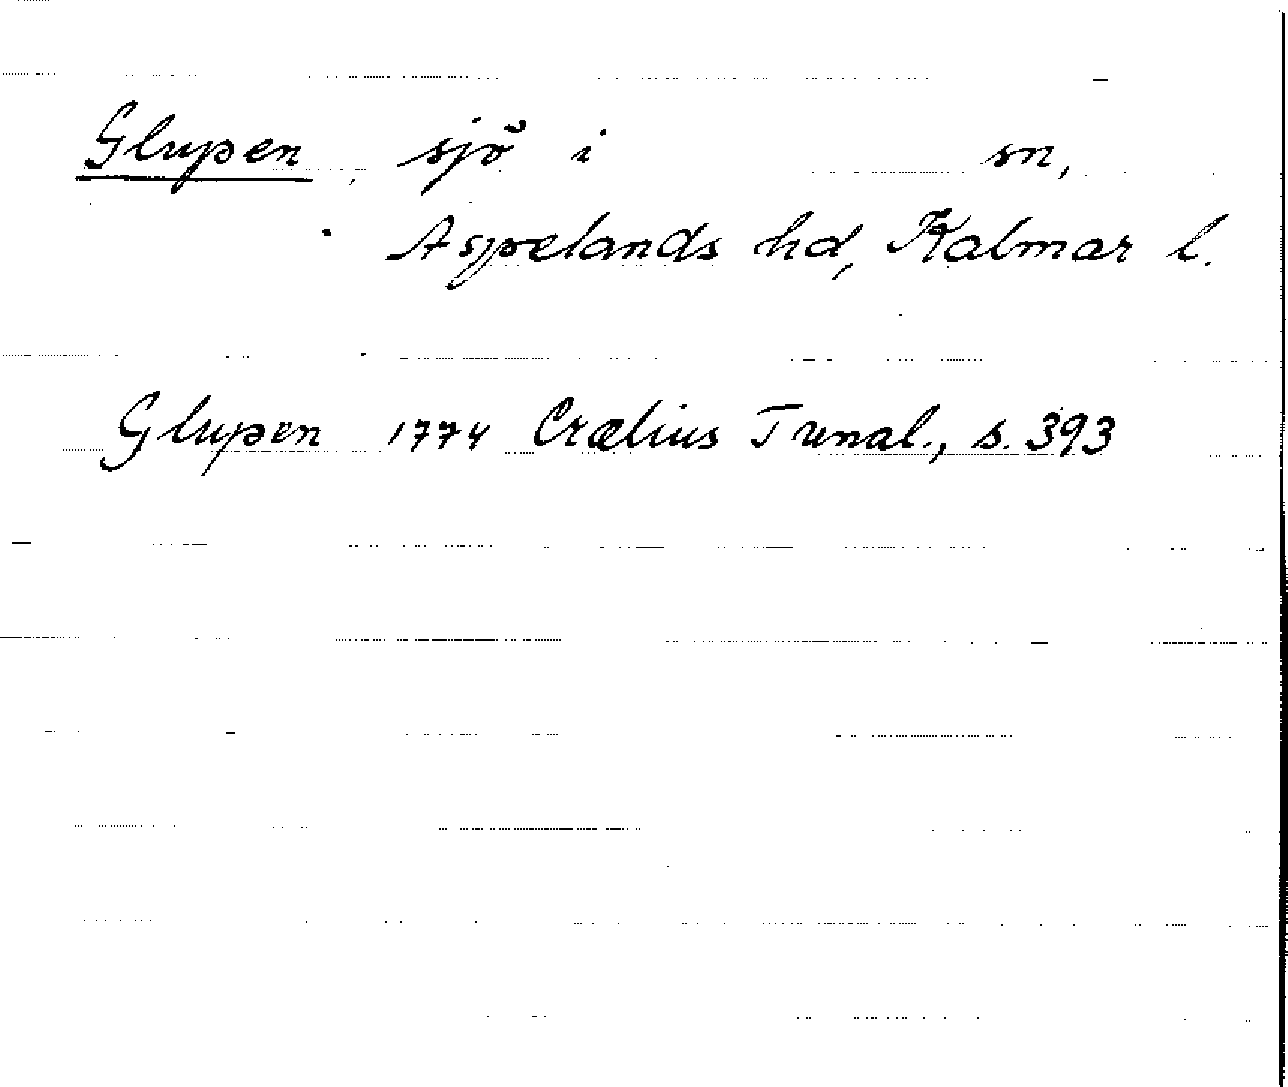 Glupen sjö i sn,
Aspelands hd, Kalmar l.
Glupen 1774 Crælius Tunal., s. 393